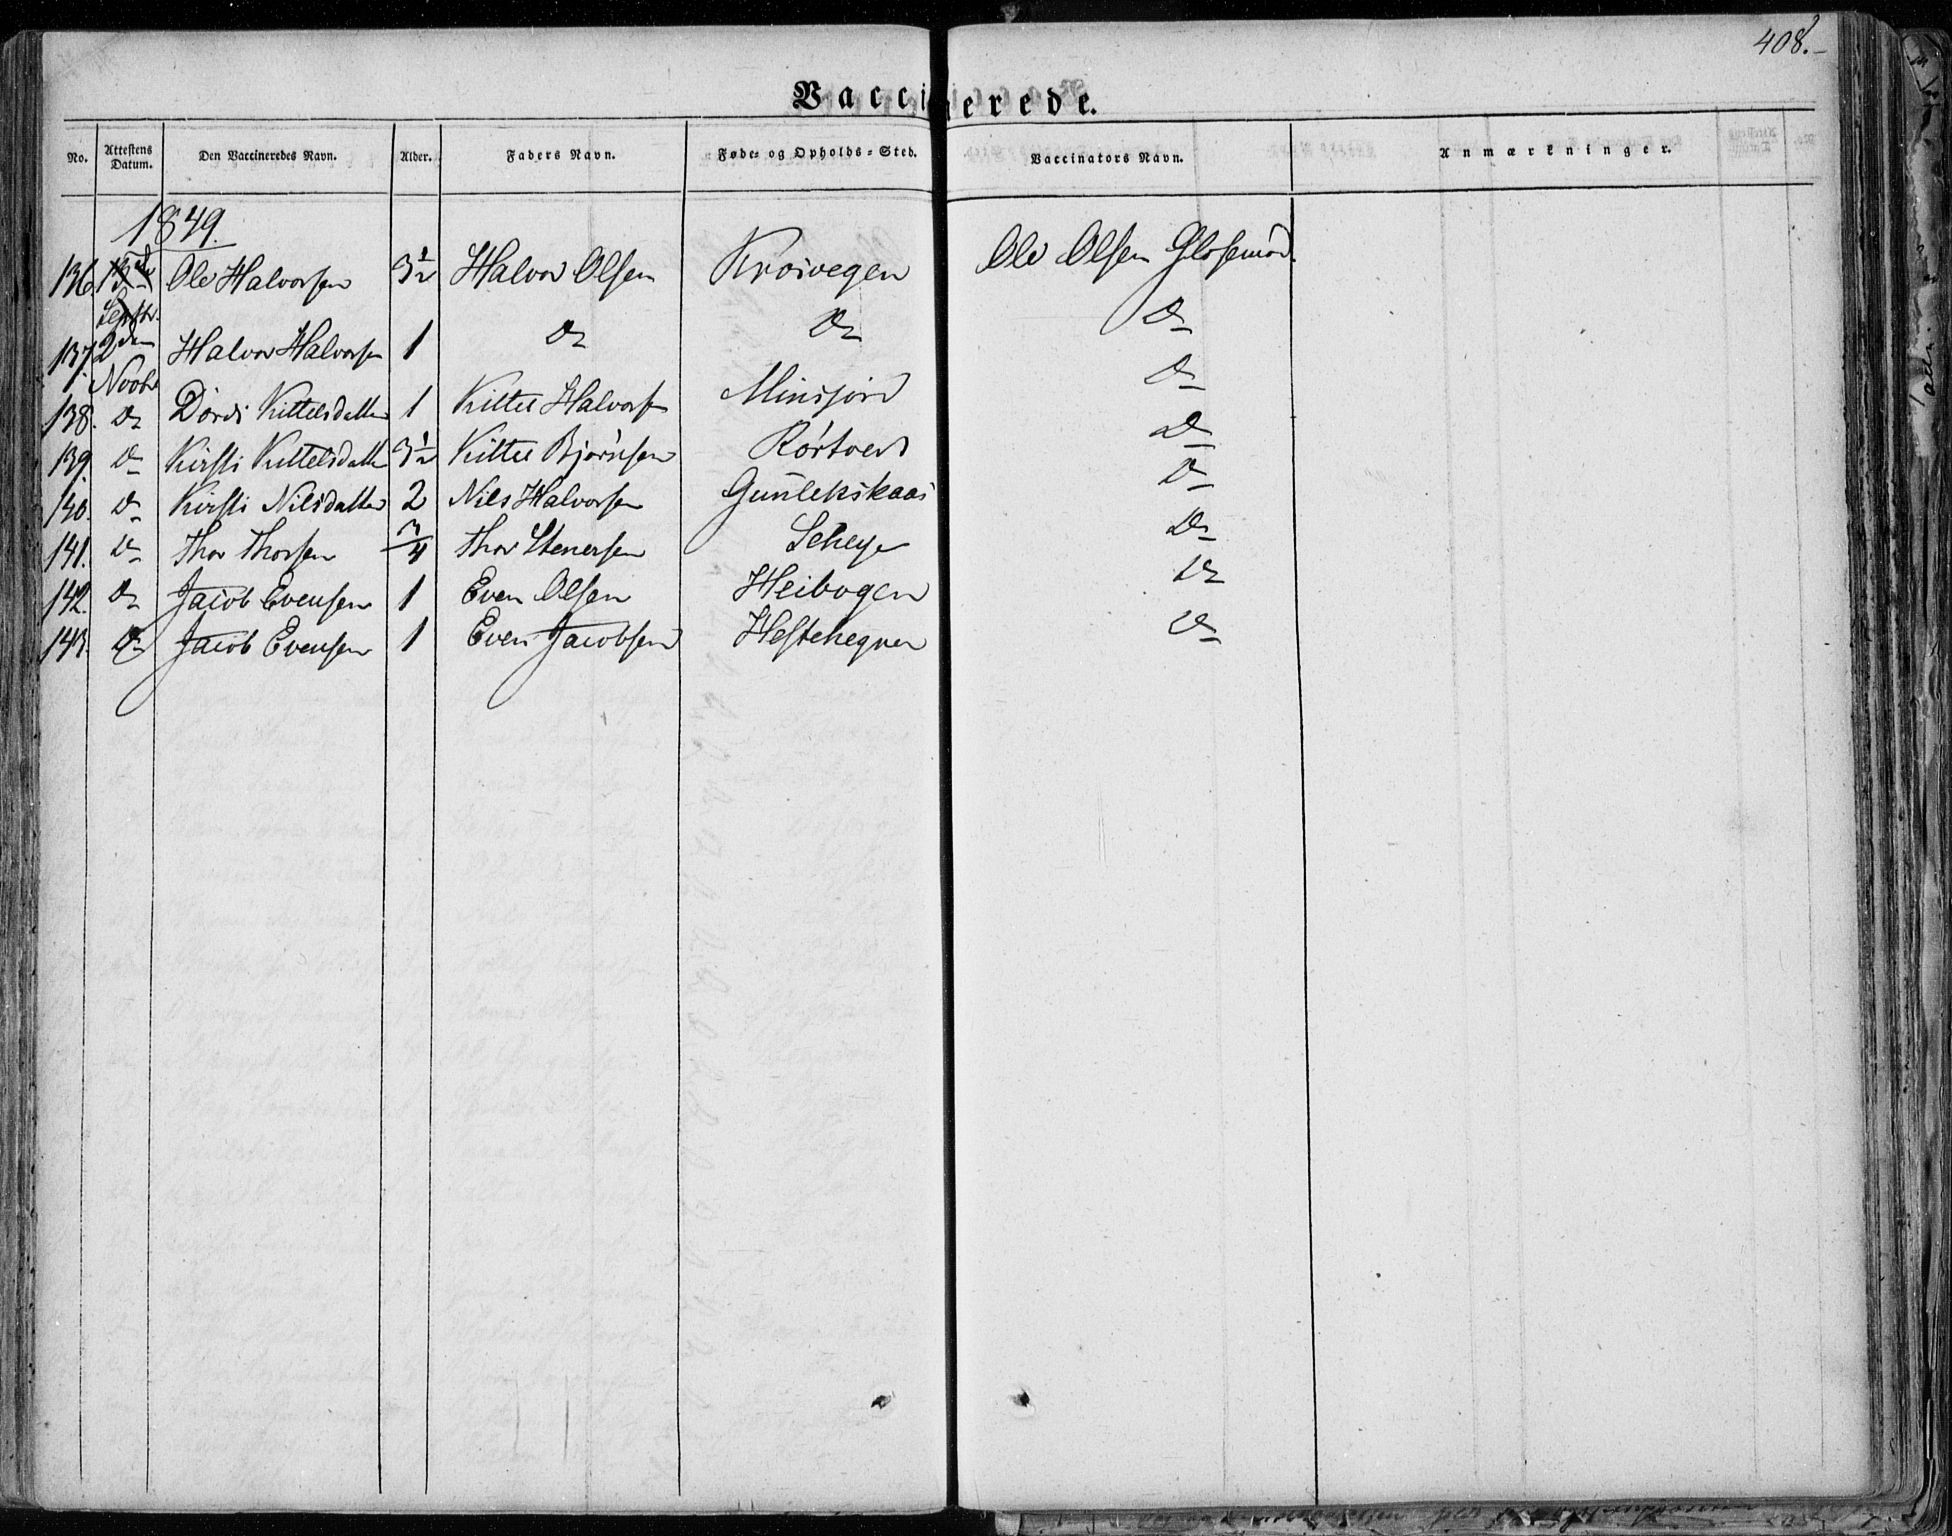 408.
Vaccinerede.
No. Attestens Datum. Den Vaccineredes Navn. Alder. Faders Navn. Føde- og Opholds-Sted. Vaccinators Navn. Anmærkninger.
1849.
136. Septbr. Ole Halvorsen 3½ Halvor Olsen Kroivegen Ole Olsen Glosemod.
137. 2den Novbr Halvor Halvorsen 1 Do Do Do
138. Do Dordi Kittelsdatter 1 Kittel Halvors. Minsjord Do
139. Do Kirsti Kittelsdatter 3½ Kittel Bjørnsen Rørtved Do
140. Do Kirsti Nilsdatter 2 Nils Halvorsen Gunlekskaas Do
141. Do Thor Thorsen ¾ Thor Stenersen Scheye Do
142. Do Jacob Evensen 1 Even Olsen Heibogen Do
143. Do Jacob Evensen 1 Even Jacobsen Hestehegnen Do